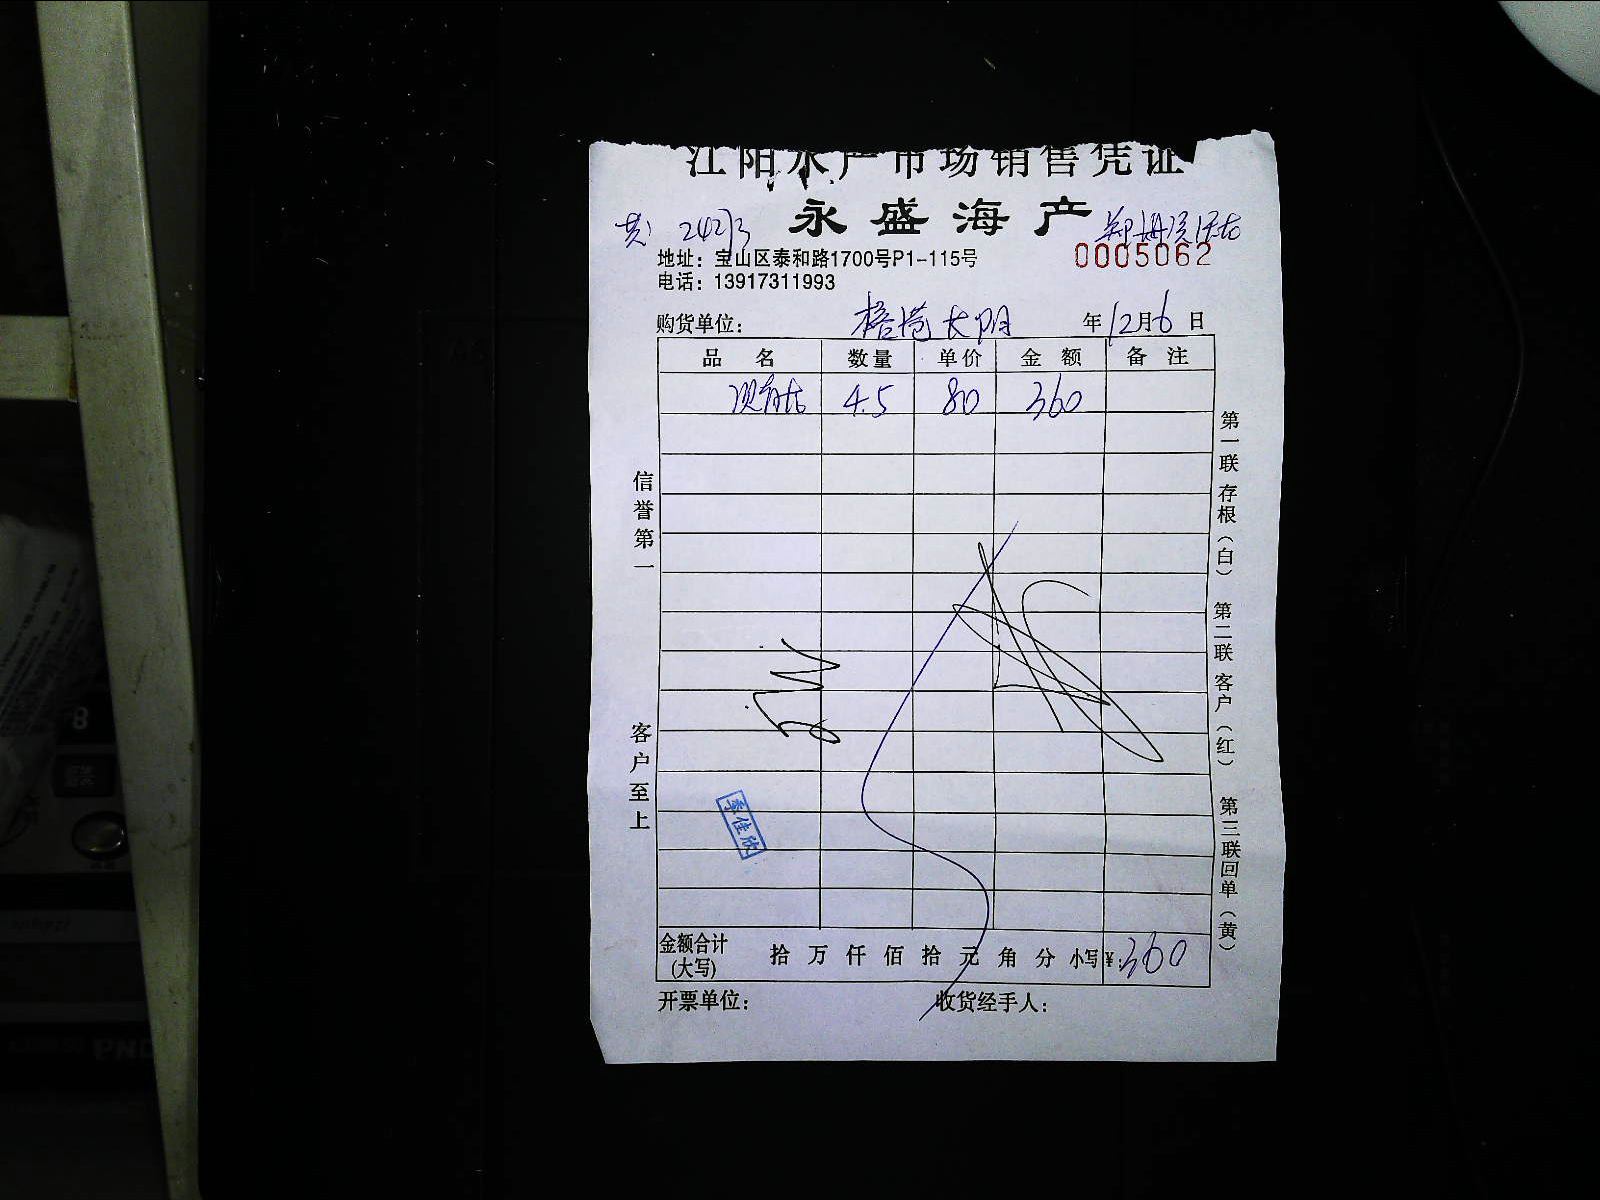 江阳水产市场销售凭证
永盛海产
0005062
地址：宝山区泰和路1700号P1-115号
电话：13917311993
购货单位： 年12月6日
品名 数量 单价 金额 备注
4.5 80 360
信誉第一
客户至上
第一联存根（白）
第二联客户（红）
第三联回单（黄）
季佳欣
金额合计(大写) 拾 万 仟 佰 拾 元 角 分 小写¥:360
开票单位： 收货经手人：